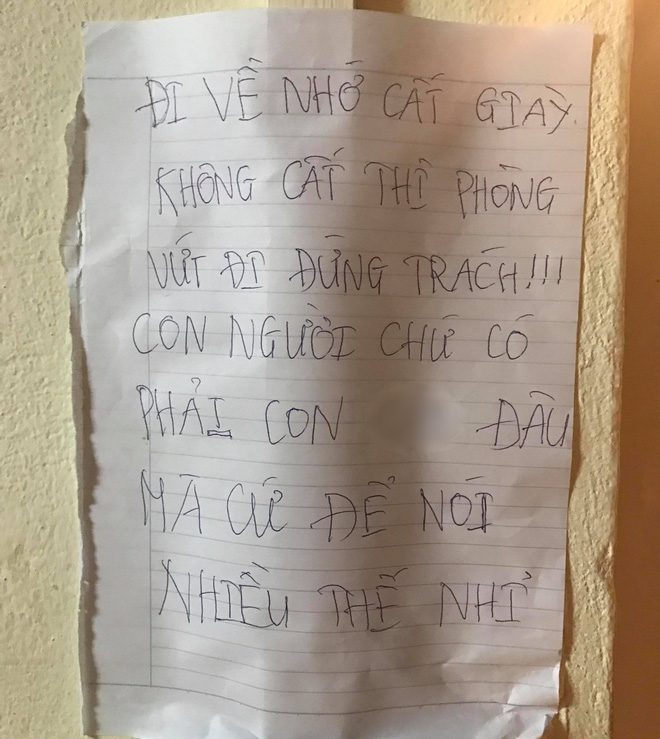 ĐI VỀ NHỚ CẤT GIÀY.
KHÔNG CẤT THÌ PHÒNG
VỨT ĐI ĐỪNG TRÁCH!!!
CON NGƯỜI CHỨ CÓ
PHẢI CON ĐÂU
MÀ CỨ ĐỂ NÓI
NHIỀU THẾ NHỈ